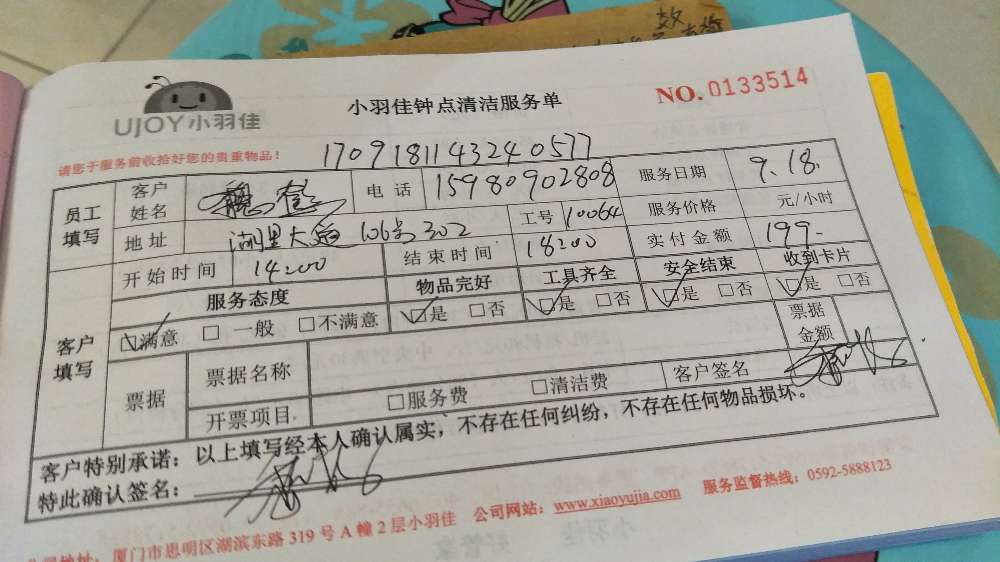 UJOY小羽佳
小羽佳钟点清洁服务单
NO.0133514
请您于服务前收拾好您的贵重物品!
1709181143240577
员工填写 客户姓名 电话 15980902808 服务日期 9.18.
地址 湖里大道106号302 工号 10064 服务价格 元/小时
开始时间 14:00 结束时间 18:00 实付金额 199.
客户填写 服务态度 物品完好 工具齐全 安全结束 收到卡片
☑满意 □一般 □不满意 ☑是 □否 ☑是 □否 ☑是 □否 ☑是 □否
票据 票据名称 票据金额
开票项目 □服务费 □清洁费 客户签名
客户特别承诺:以上填写经本人确认属实,不存在任何纠纷,不存在任何物品损坏。
特此确认签名:
公司地址:厦门市思明区湖滨东路319号A幢2层小羽佳 公司网站:www.xiaoyujia.com 服务监督热线:0592-5888123